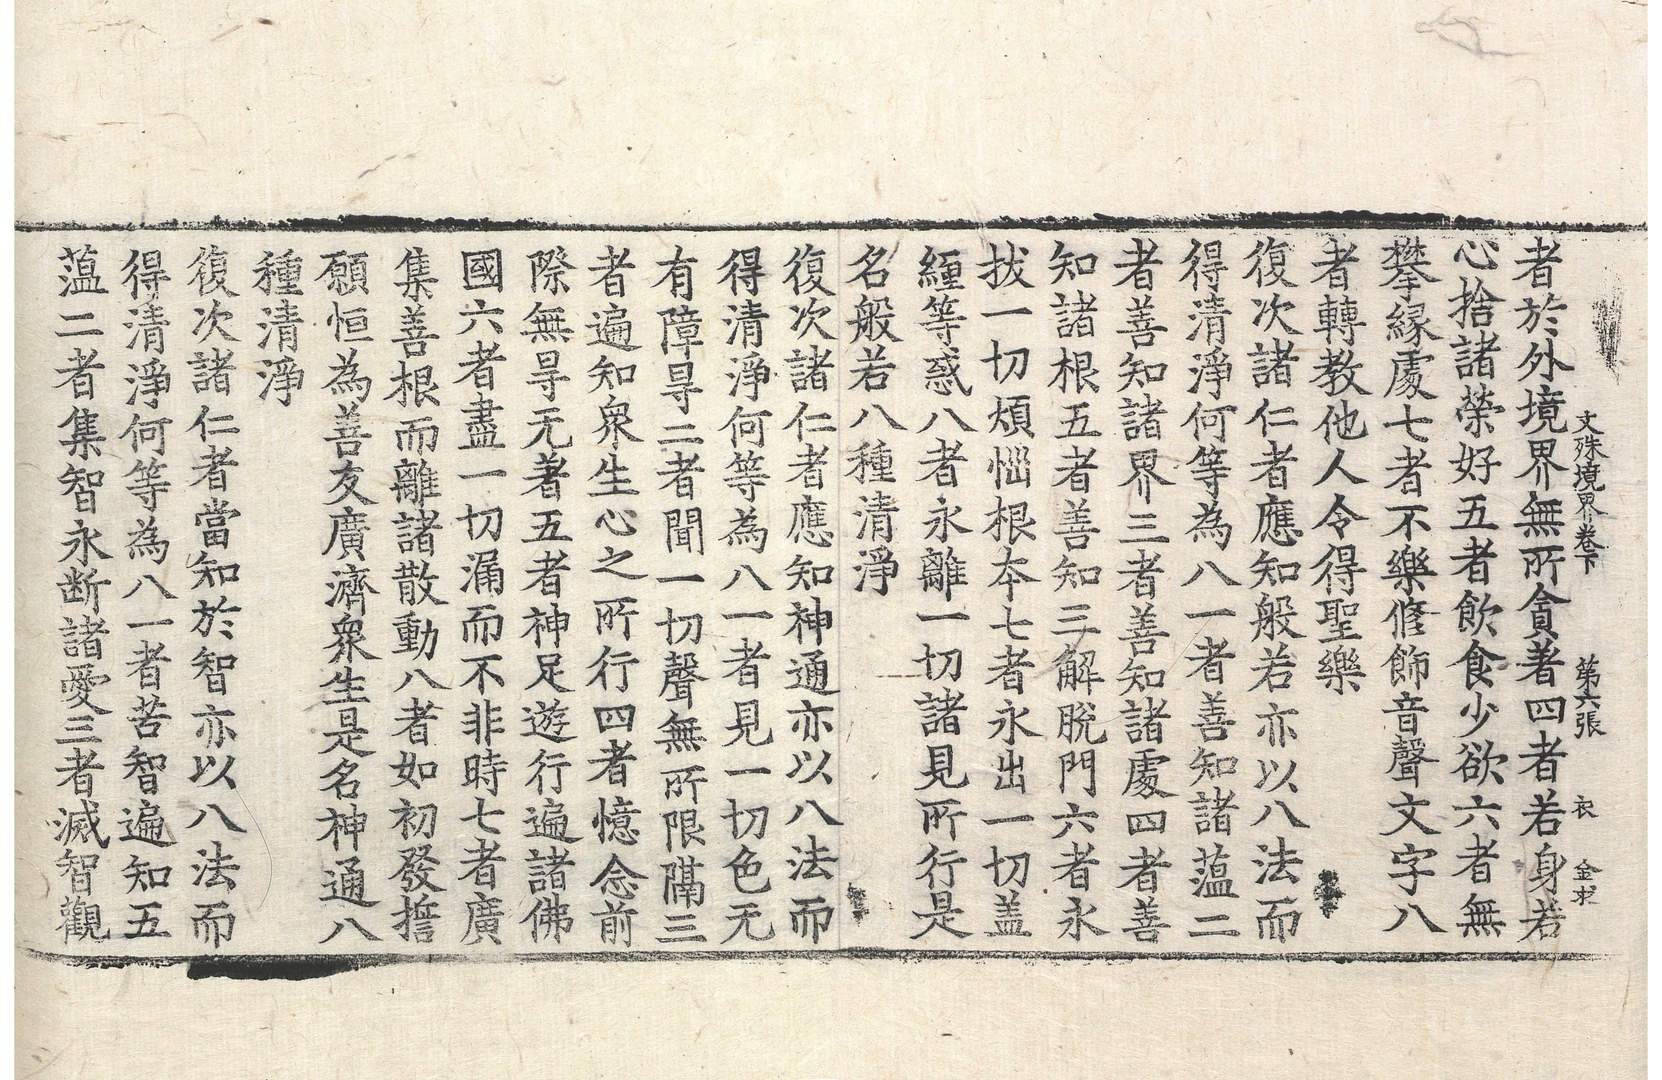 文殊境界卷下 第六張 衣 金求
者於外境界無所貪著四者若身若
心捨諸榮好五者飲食少欲六者無
攀緣處七者不樂修飾音聲文字八
者轉教他人令得聖樂
復次諸仁者應知般若亦以八法而
得清淨何等為八一者善知諸薀二
者善知諸界三者善知諸處四者善
知諸根五者善知三解脫門六者永
拔一切煩惱根本七者永出一切盖
纏等惑八者永離一切諸見所行是
名般若八種清淨
復次諸仁者應知神通亦以八法而
得清淨何等為八一者見一切色无
有障㝵二者聞一切聲無所限隔三
者遍知衆生心之所行四者憶念前
際無㝵无著五者神足遊行遍諸佛
國六者盡一切漏而不非時七者廣
集善根而離諸散動八者如初發誓
願恒為善友廣濟衆生是名神通八
種清淨
復次諸仁者當知於智亦以八法而
得清淨何等為八一者苦智遍知五
薀二者集智永断諸愛三者滅智觀